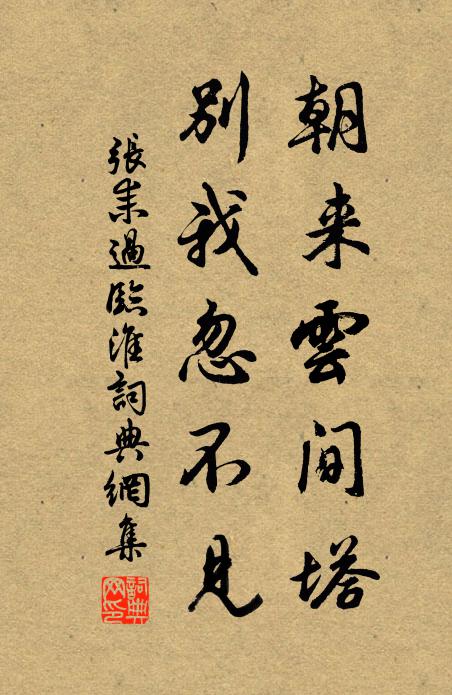 朝来雲间塔
別我忽不見
張耒過臨淮詞典網集
詞典网印